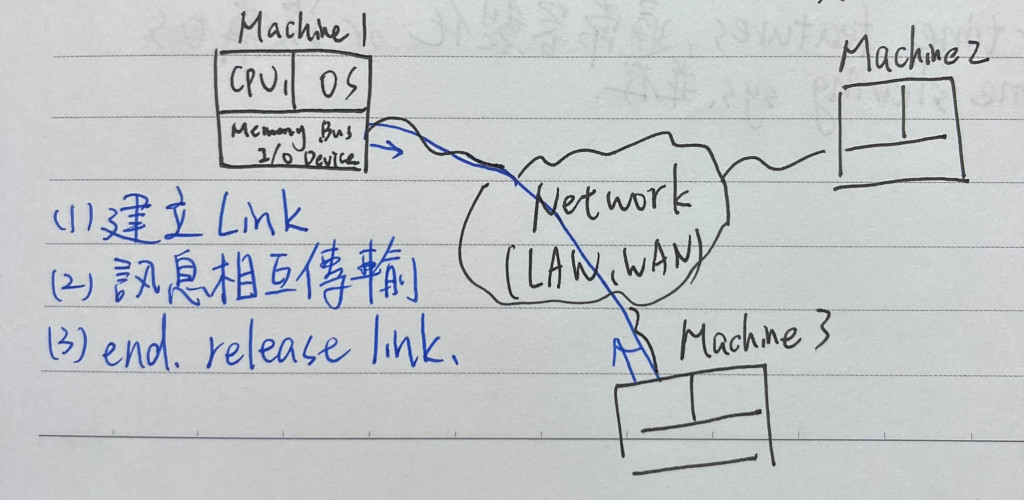 Machine 1
CPU1 OS
Memory Bus
I/O Device
Machine 2
Network
(LAW, WAN)
Machine 3
(1) 建立 Link
(2) 訊息相互傳輸
(3) end. release link.